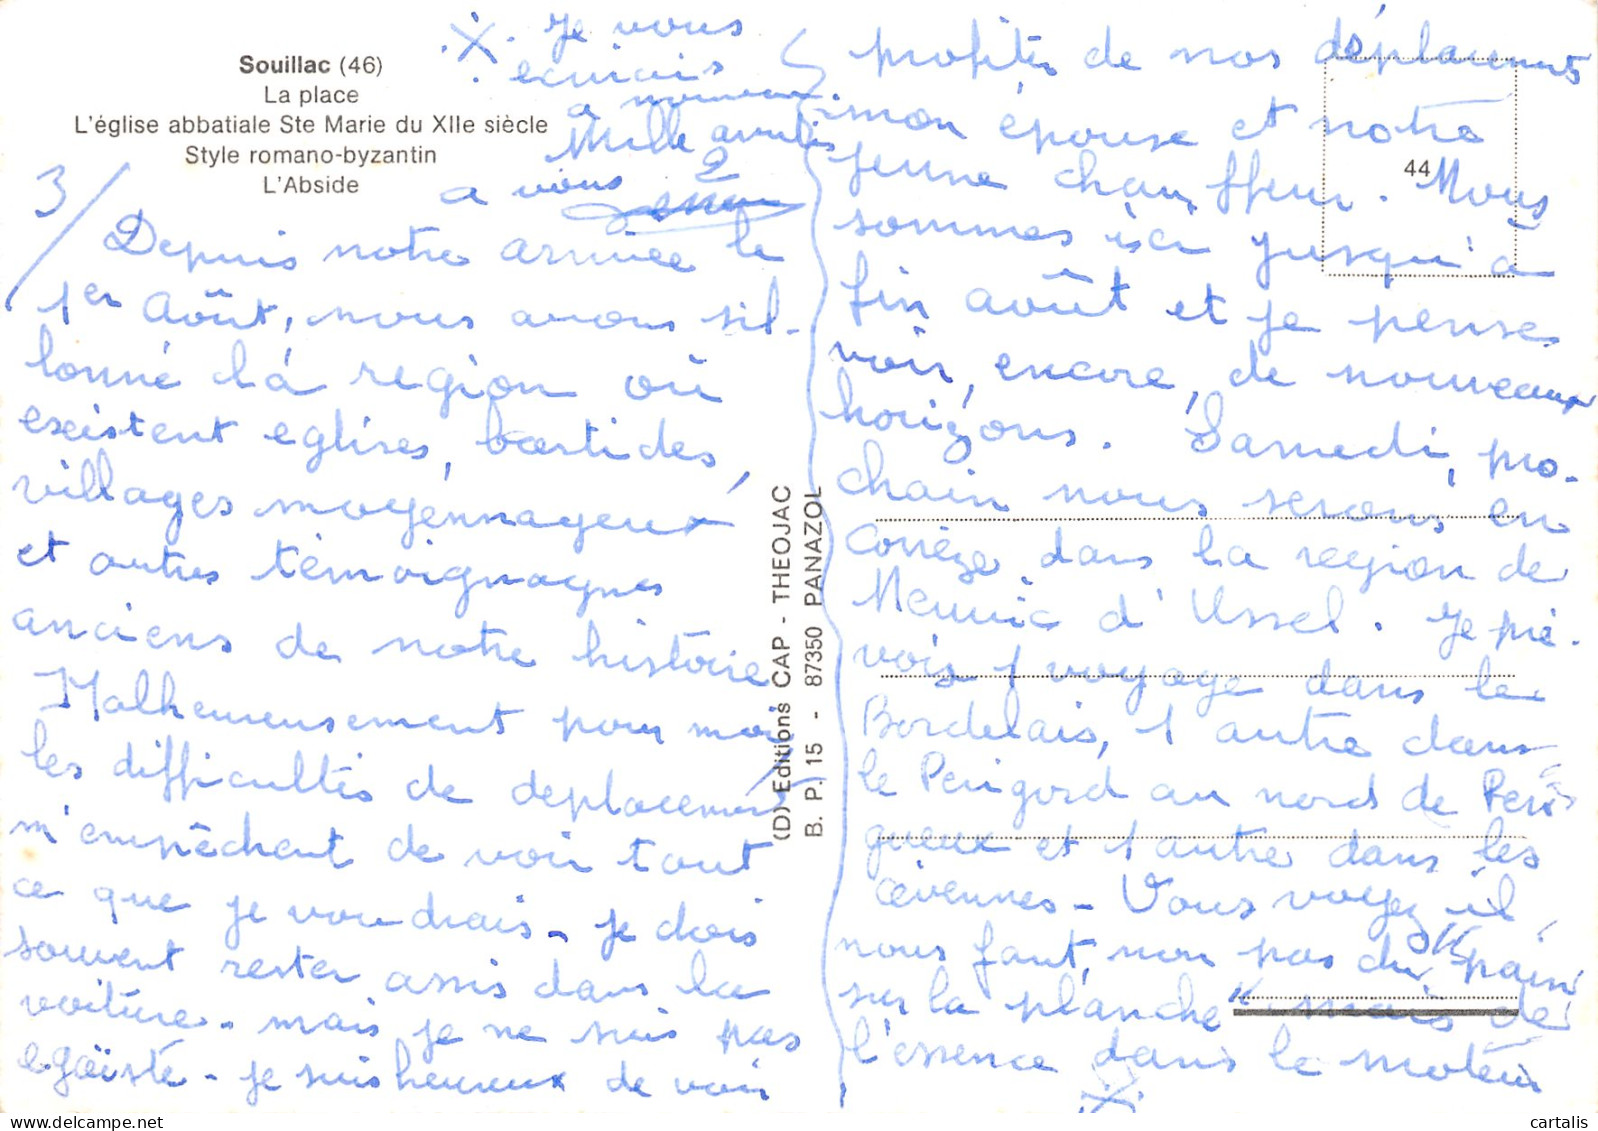 Souillac (46)
La place
L'église abbatiale Ste Marie du XIIe siècle
Style romano-byzantin
L'Abside
3/
Depuis notre arrivée le
1er Août, nous avons sil-
lonné la région où
existent eglises, bastides,
villages moyennageux
et autres témoignages
anciens de notre histoire
Malheureusement pour moi
les difficultés de deplacements
m'empêchent de voir tout
ce que je voudrais - je dois
souvent rester assis dans la
voiture - mais je ne suis pas
egoïste - je suis heureux de voir
profiter de nos déplacements
mon épouse et notre
jeune chauffeur. Nous
sommes ici jusqu'à
fin août et je pense
voir, encore, de nouveaux
horizons. Samedi, pro-
chain nous serons en
Corrèze, dans la region de
Meymac d'Ussel. Je pré-
vois 1 voyage dans le
Bordelais, 1 autre dans
le Perigord au nord de Peri
gueux et 1 autre dans les
cevennes - Vous voyez il
nous faut, non pas du "pain
sur la planche" mais de
l'essence dans le moteur
X
X Je vous
ecrirais
a nouveau
Mille amitiés
a vous 2
44
(D) Editions CAP - THEOJAC
B. P. 15 - 87350 PANAZOL
cartalis